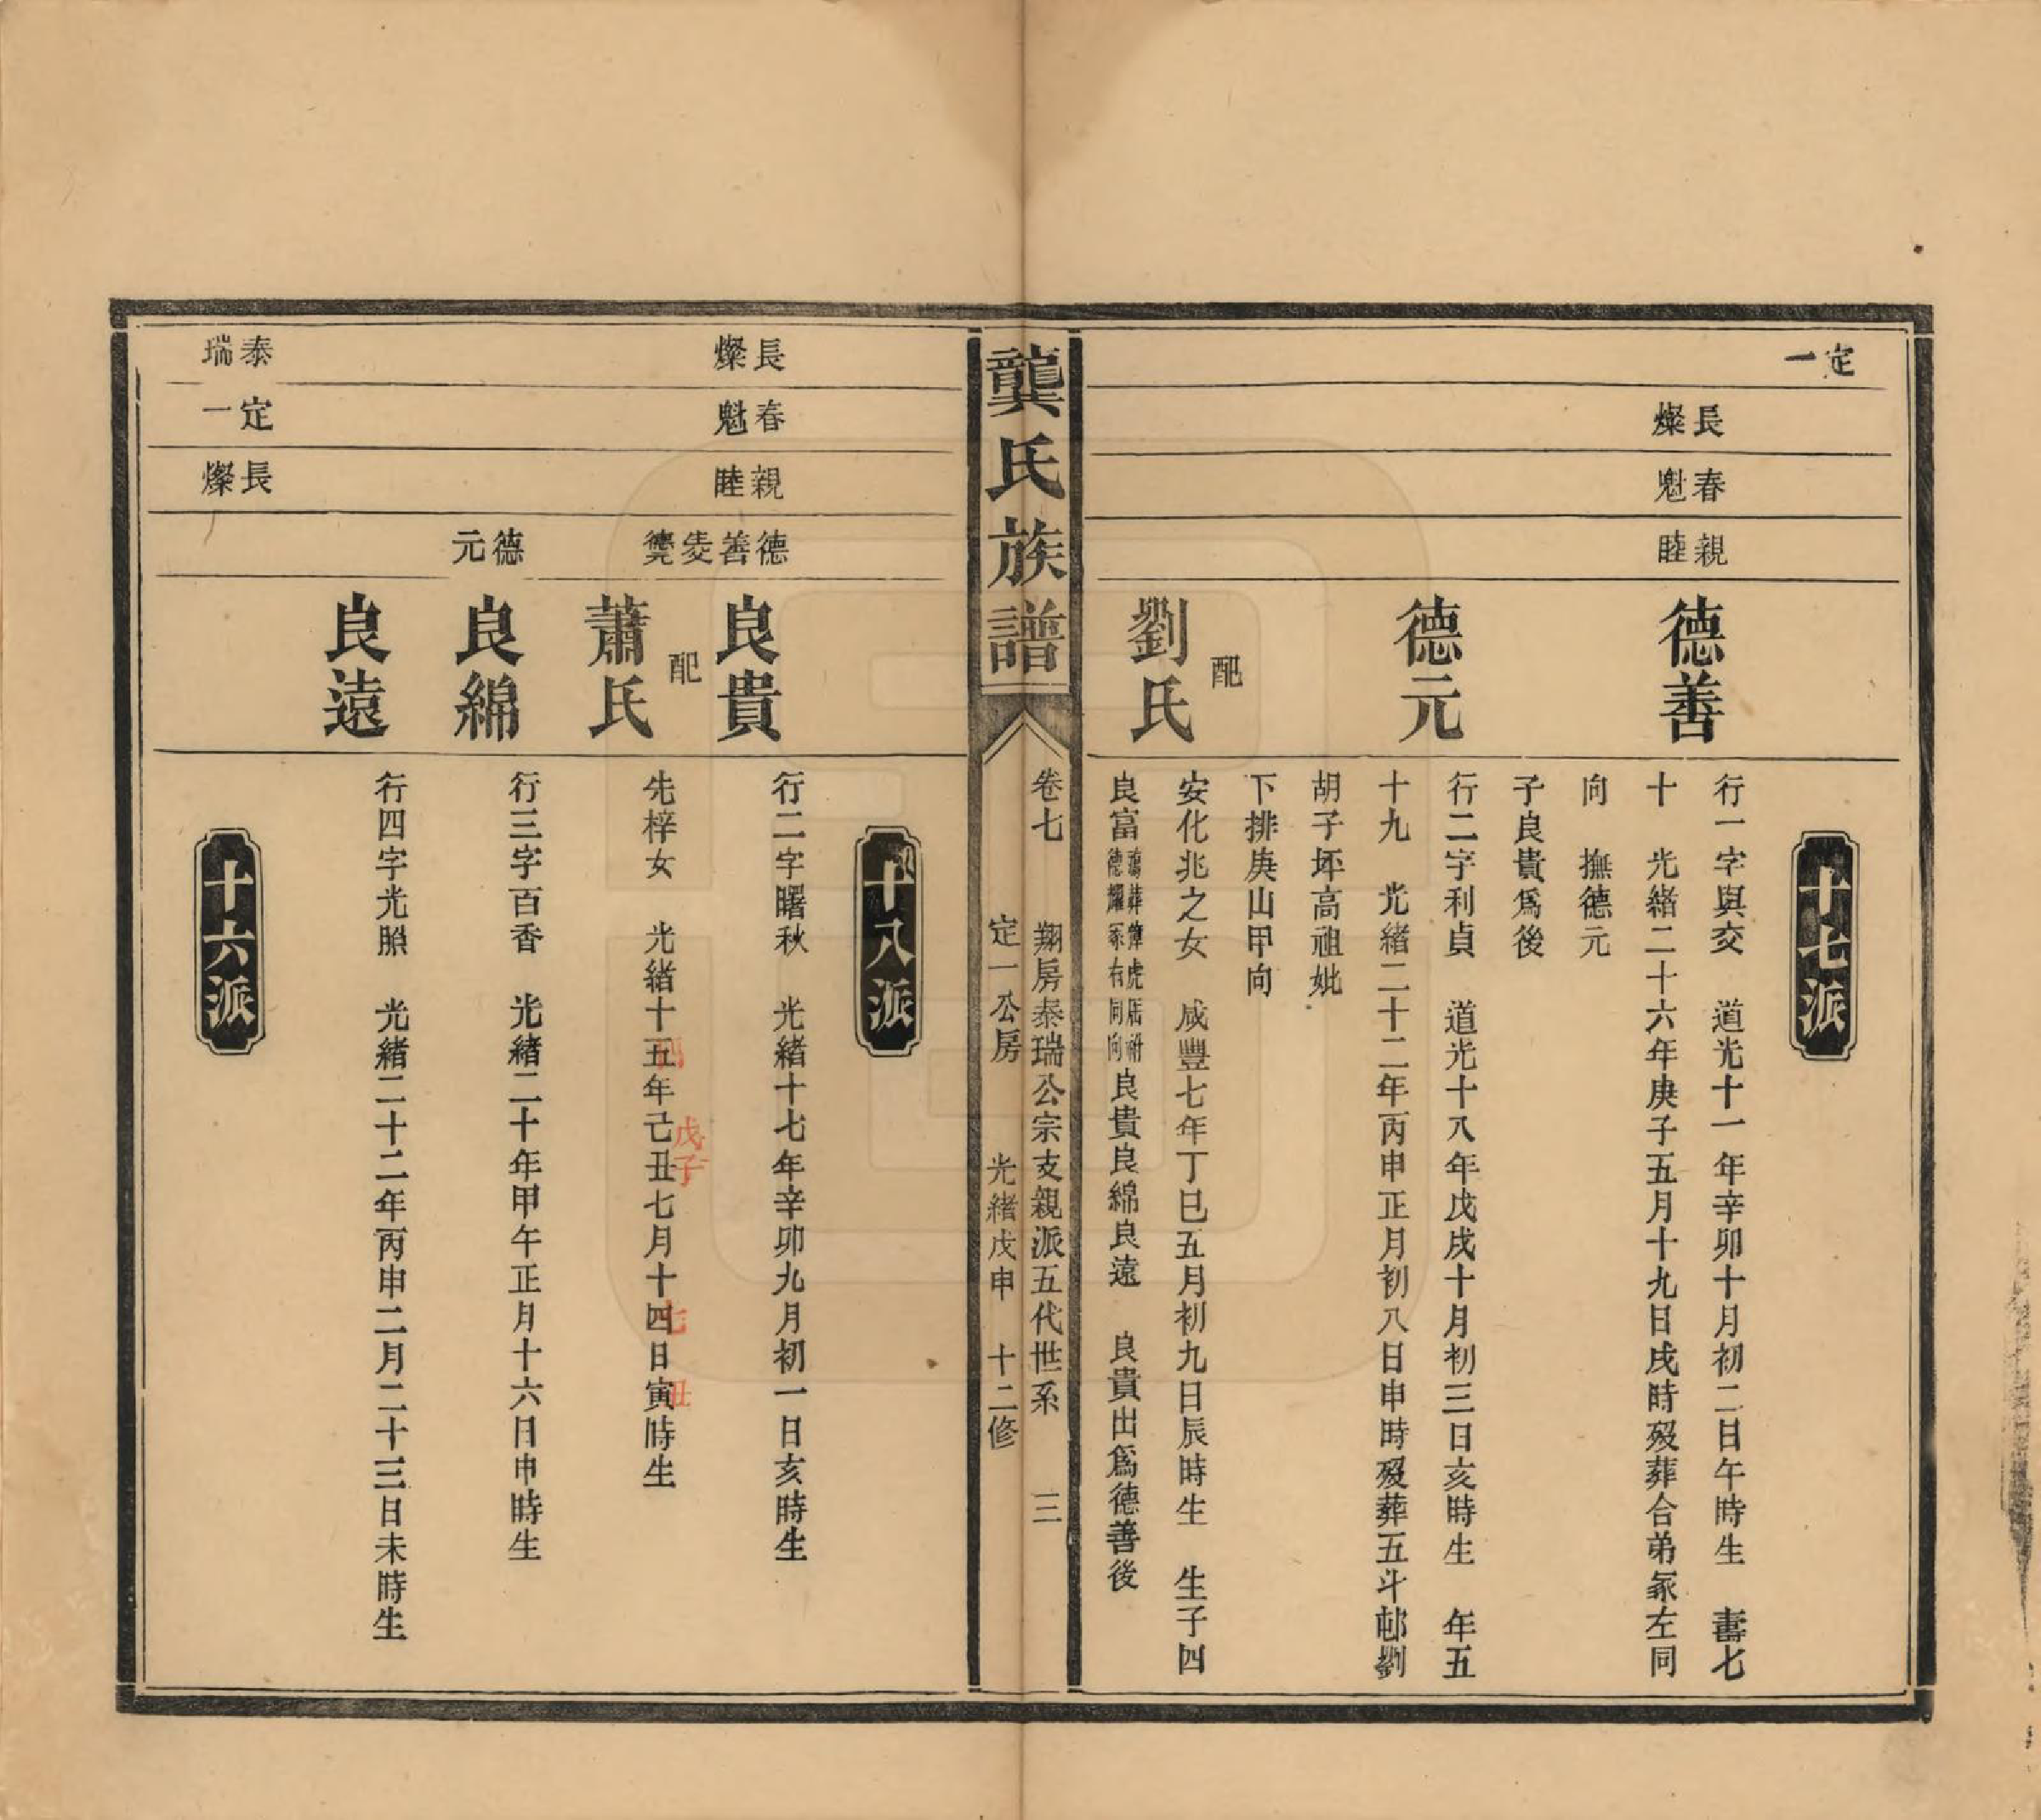 定一
長燦
春魁
親睦
十七派
德善
行一字與交　道光十一年辛卯十月初二日午時生　壽七
十　光緒二十六年庚子五月十九日戌時歿葬合弟冢左同
向　撫德元
子良貴爲後
德元
行二字利貞　道光十八年戊戌十月初三日亥時生　年五
十九　光緒二十二年丙申正月初八日申時歿葬五斗邨劉
胡子坪高祖妣
下排庚山甲向
配
劉氏
安化兆之女　咸豐七年丁巳五月初九日辰時生　生子四
良富
虎居
德耀冢右同向
良貴良綿良遠　良貴出爲德善後
龔氏族譜
卷七　翔房泰瑞公宗支親派五代世系　三
定一公房　光緒戊申　十二修
長燦
春魁
親睦
德善
十八派
良貴
行二字曙秋　光緒十七年辛卯九月初一日亥時生
配
蕭氏
先梓女　光緒十五年己丑七月十四日寅時生
四
戊子
七
丑
德元
良綿
行三字百香　光緒二十年甲午正月十六日申時生
良遠
行四字光照　光緒二十二年丙申二月二十三日未時生
泰瑞
定一
長燦
十六派